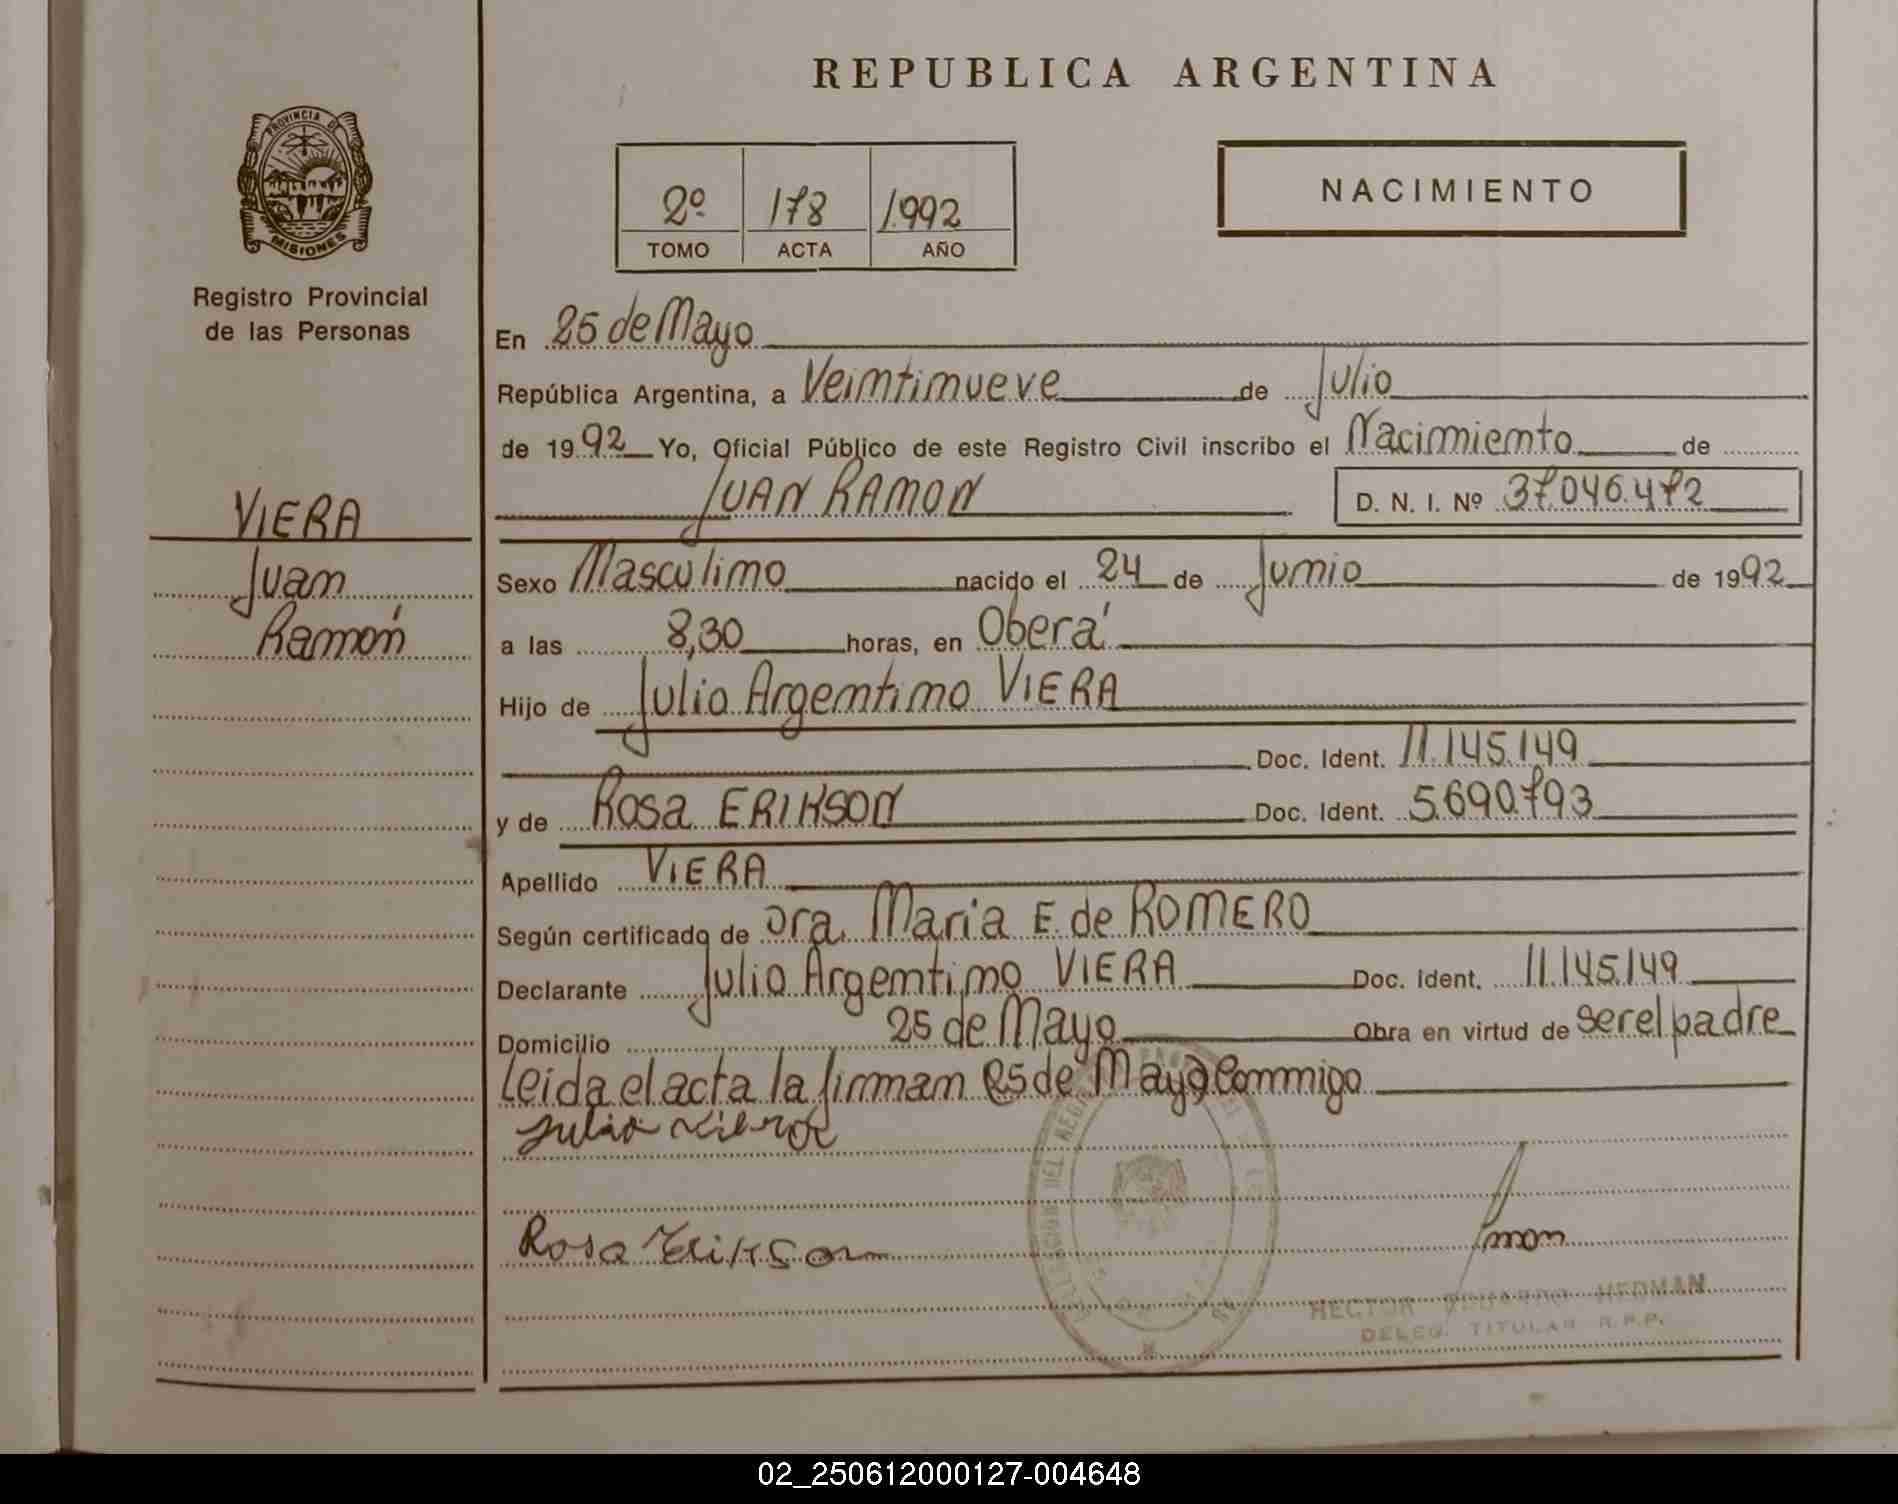 REPUBLICA ARGENTINA
PROVINCIA DE
MISIONES
Registro Provincial
de las Personas
2º 178 1.992
TOMO ACTA AÑO
NACIMIENTO
VIERA
Juan
Ramón
En 25 de Mayo
República Argentina, a Veintinueve de Julio
de 1992 Yo, Oficial Público de este Registro Civil inscribo el Nacimiento de
JUAN RAMON D. N. I. Nº 37.046.472
Sexo Masculino nacido el 24 de Junio de 1992
a las 8,30 horas, en Oberá
Hijo de Julio Argentino VIERA
Doc. Ident. 11.145.149
y de Rosa ERIKSON Doc. Ident. 5.690.793
Apellido VIERA
Según certificado de Dra. Maria E. de ROMERO
Declarante Julio Argentino VIERA Doc. Ident. 11.145.149
Domicilio 25 de Mayo Obra en virtud de ser el padre
Leida el acta la firman (25 de Mayo) Conmigo
Julio Viera
Rosa Erikson
DELEGACION DEL
HECTOR EDUARDO HEDMAN
DELEG. TITULAR R.P.P.
02_250612000127-004648